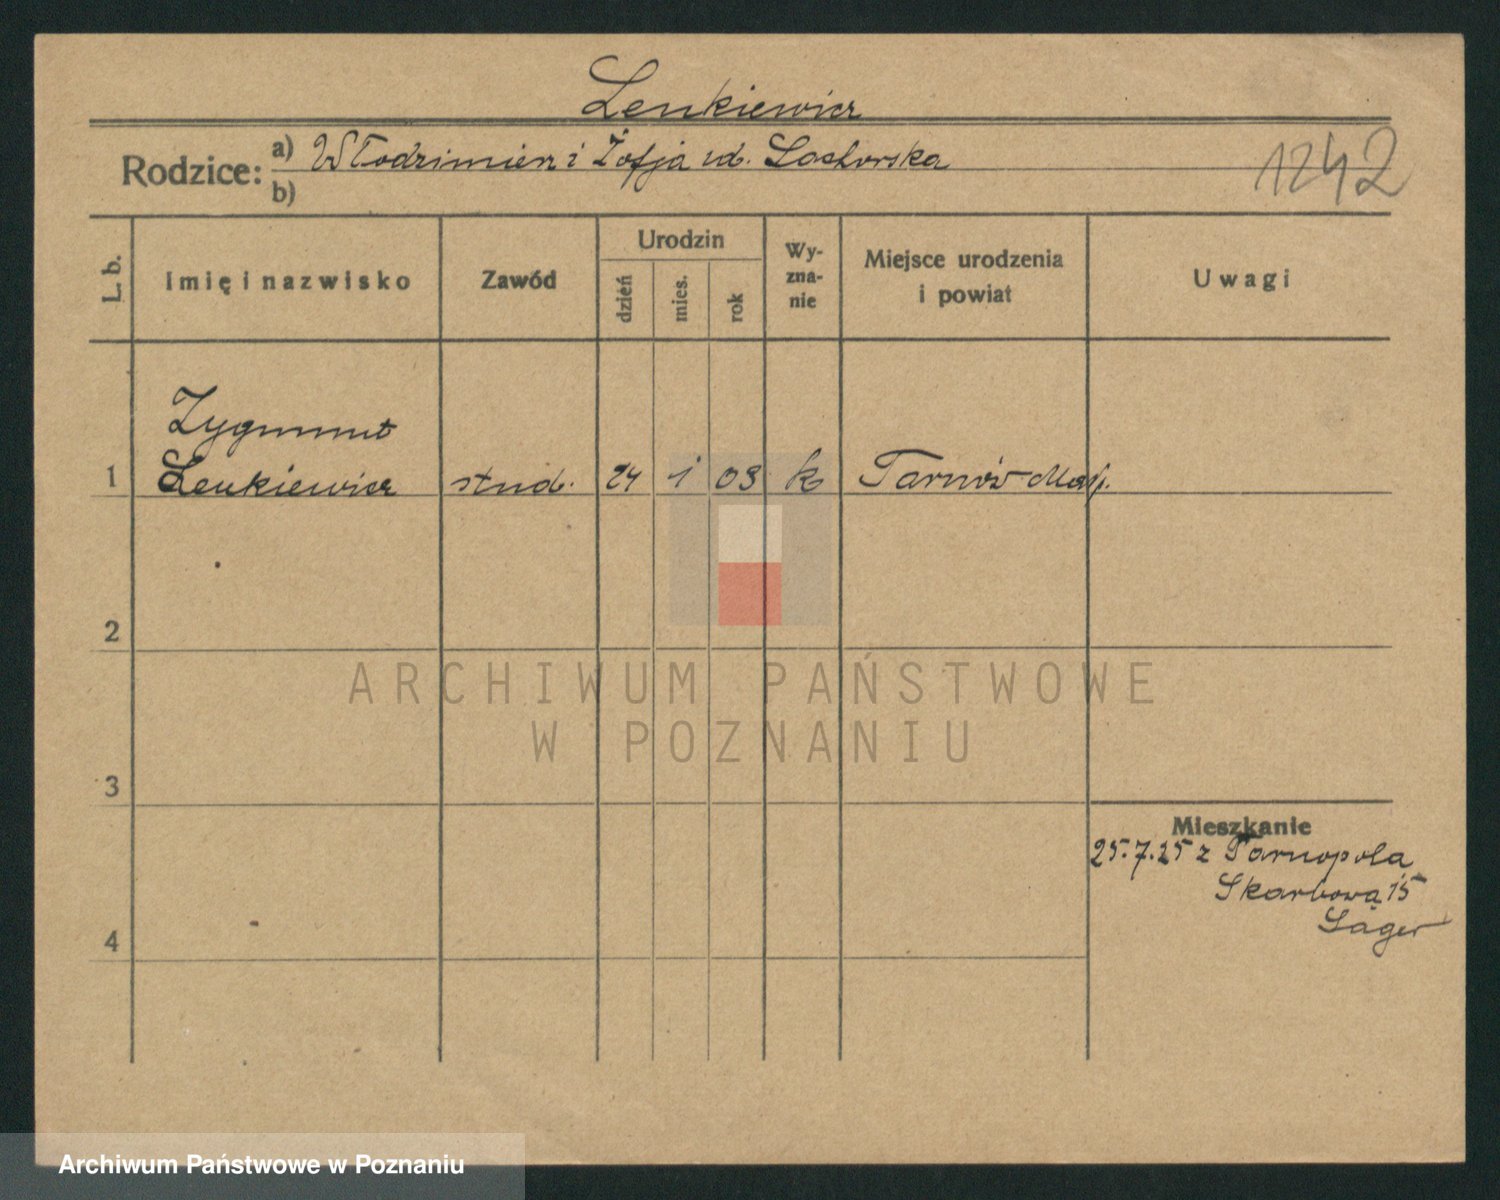 Lenkiewicz
Rodzice: a) Włodzimierz i Zofja ud.
1242
b)
L. b.
Imię i nazwisko
Zawód
Urodzin
dzień
mies.
rok
Wy-
zna-
nie
Miejsce urodzenia
i powiat
Uwagi
Zygmunt
1 Lenkiewicz stud. 24 1 03 k Tarnów Małp.
2
3
4
Mieszkanie
25.7.25 z Tarnopola
Skarbowa 15
ARCHIWUM PAŃSTWOWE
W POZNANIU
Archiwum Państwowe w Poznaniu